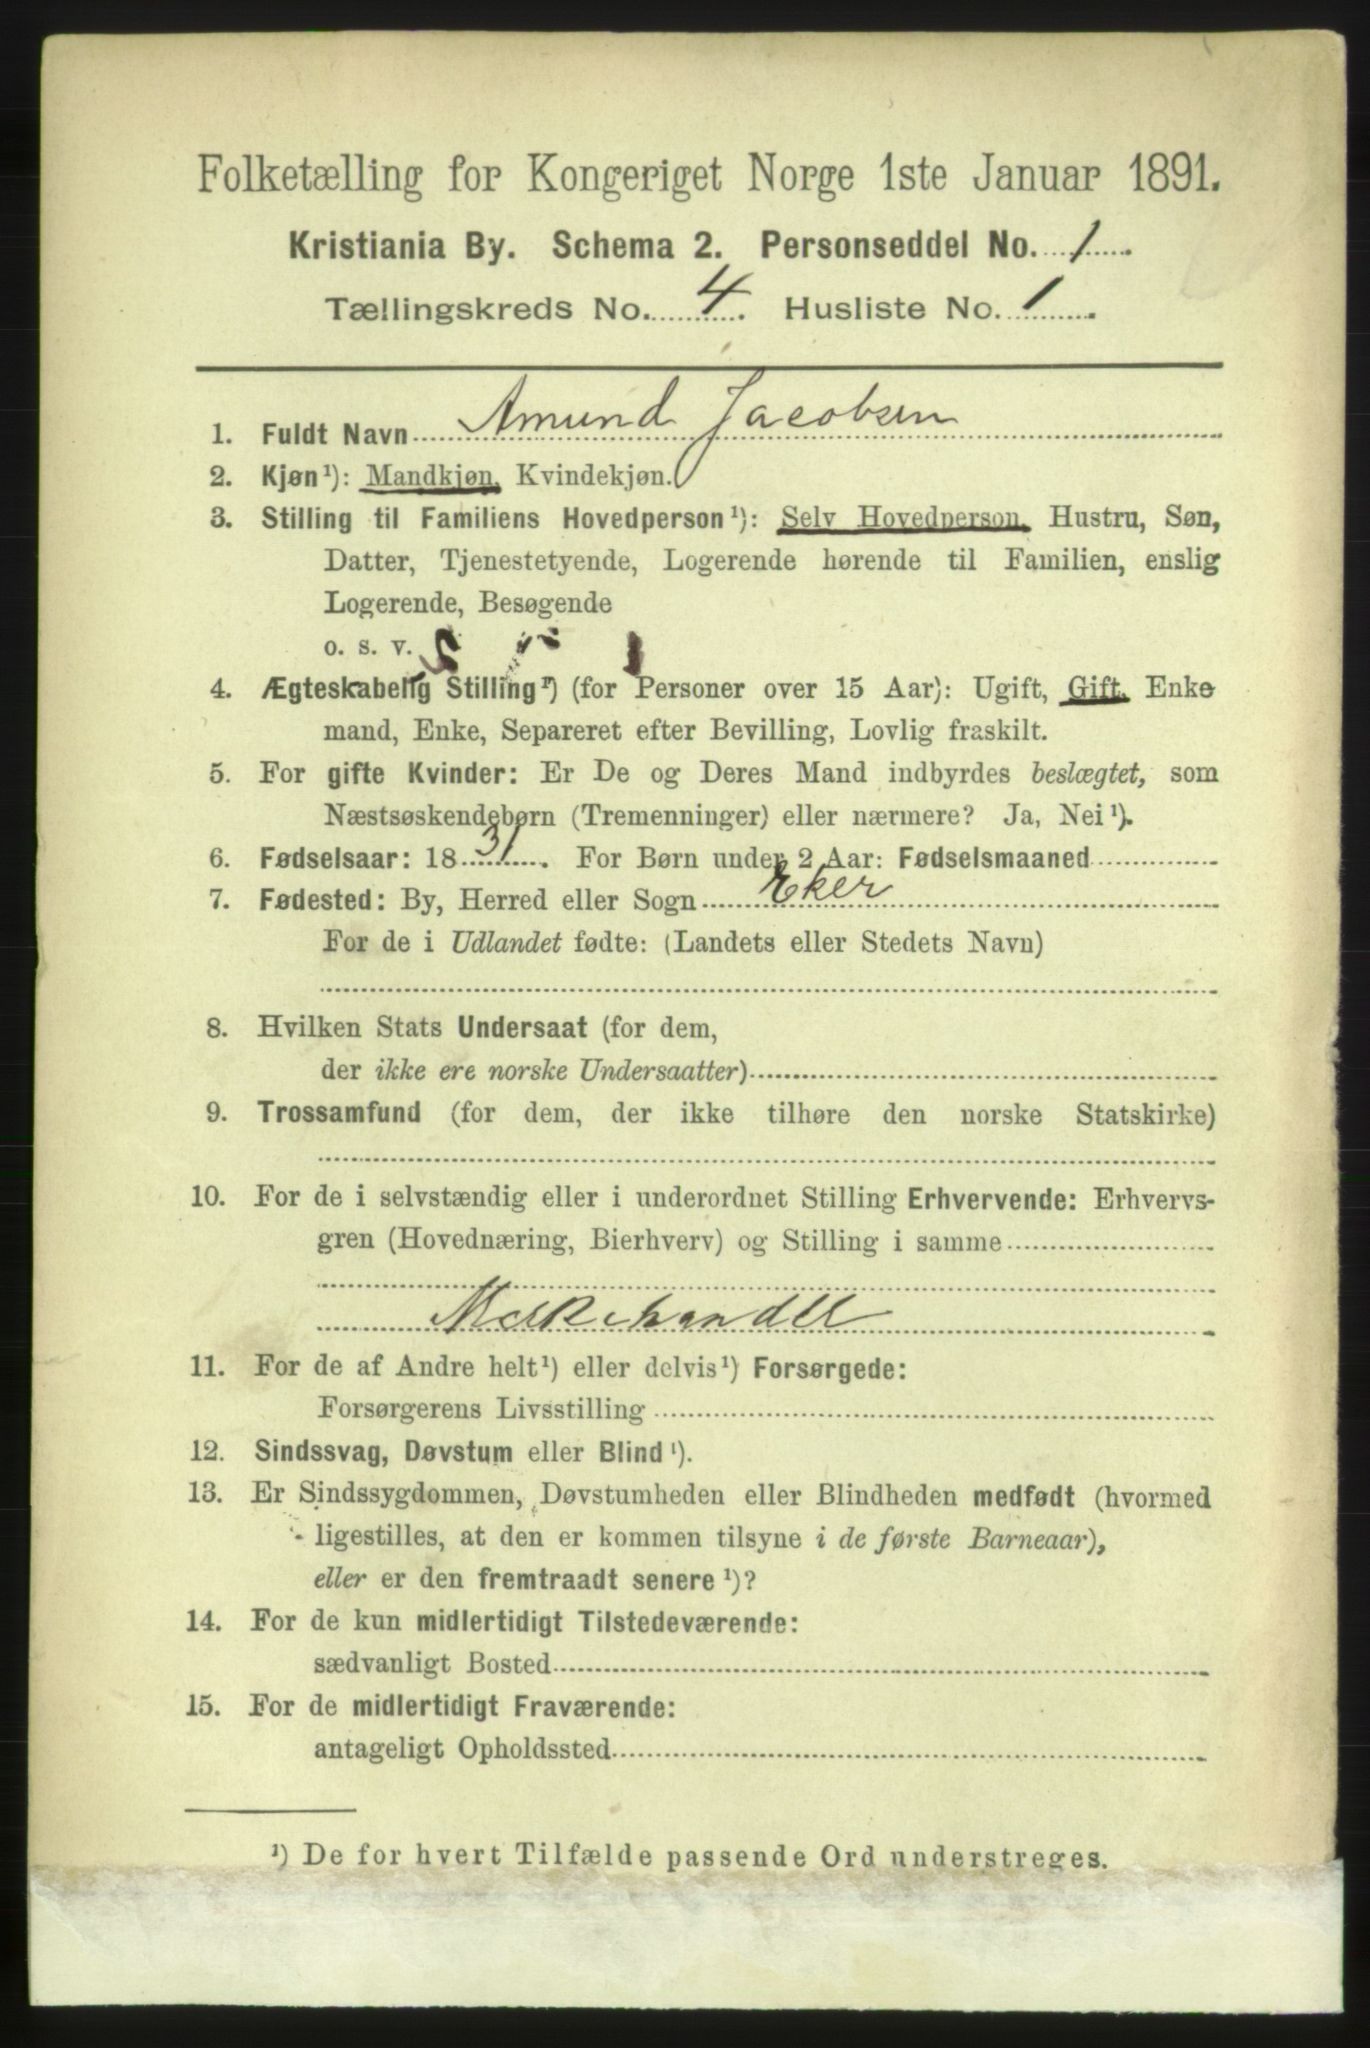 Folketælling for Kongeriget Norge 1ste Januar 1891.
Kristiania By. Schema 2. Personseddel No. 1
Tællingskreds No. 4. Husliste No. 1.
1. Fuldt Navn Amund Jacobsen
2. Kjøn¹): Mandkjøn, Kvindekjøn.
3. Stilling til Familiens Hovedperson¹): Selv Hovedperson, Hustru, Søn,
Datter, Tjenestetyende, Logerende hørende til Familien, enslig
Logerende, Besøgende
o. s. v.
4. Ægteskabelig Stilling¹) (for Personer over 15 Aar): Ugift, Gift, Enke-
mand, Enke, Separeret efter Bevilling, Lovlig fraskilt.
5. For gifte Kvinder: Er De og Deres Mand indbyrdes beslægtet, som
Næstsøskendebørn (Tremenninger) eller nærmere? Ja, Nei¹).
6. Fødselsaar: 1831. For Børn under 2 Aar: Fødselsmaaned
7. Fødested: By, Herred eller Sogn Eker
For de i Udlandet fødte: (Landets eller Stedets Navn)
8. Hvilken Stats Undersaat (for dem,
der ikke ere norske Undersaatter)
9. Trossamfund (for dem, der ikke tilhøre den norske Statskirke)
10. For de i selvstændig eller i underordnet Stilling Erhvervende: Erhvervs-
gren (Hovednæring, Bierhverv) og Stilling i samme
11. For de af Andre helt¹) eller delvis¹) Forsørgede:
Forsørgerens Livsstilling
12. Sindssvag, Døvstum eller Blind¹).
13. Er Sindssygdommen, Døvstumheden eller Blindheden medfødt (hvormed
ligestilles, at den er kommen tilsyne i de første Barneaar),
eller er den fremtraadt senere¹)?
14. For de kun midlertidigt Tilstedeværende:
sædvanligt Bosted
15. For de midlertidigt Fraværende:
antageligt Opholdssted
¹) De for hvert Tilfælde passende Ord understreges.